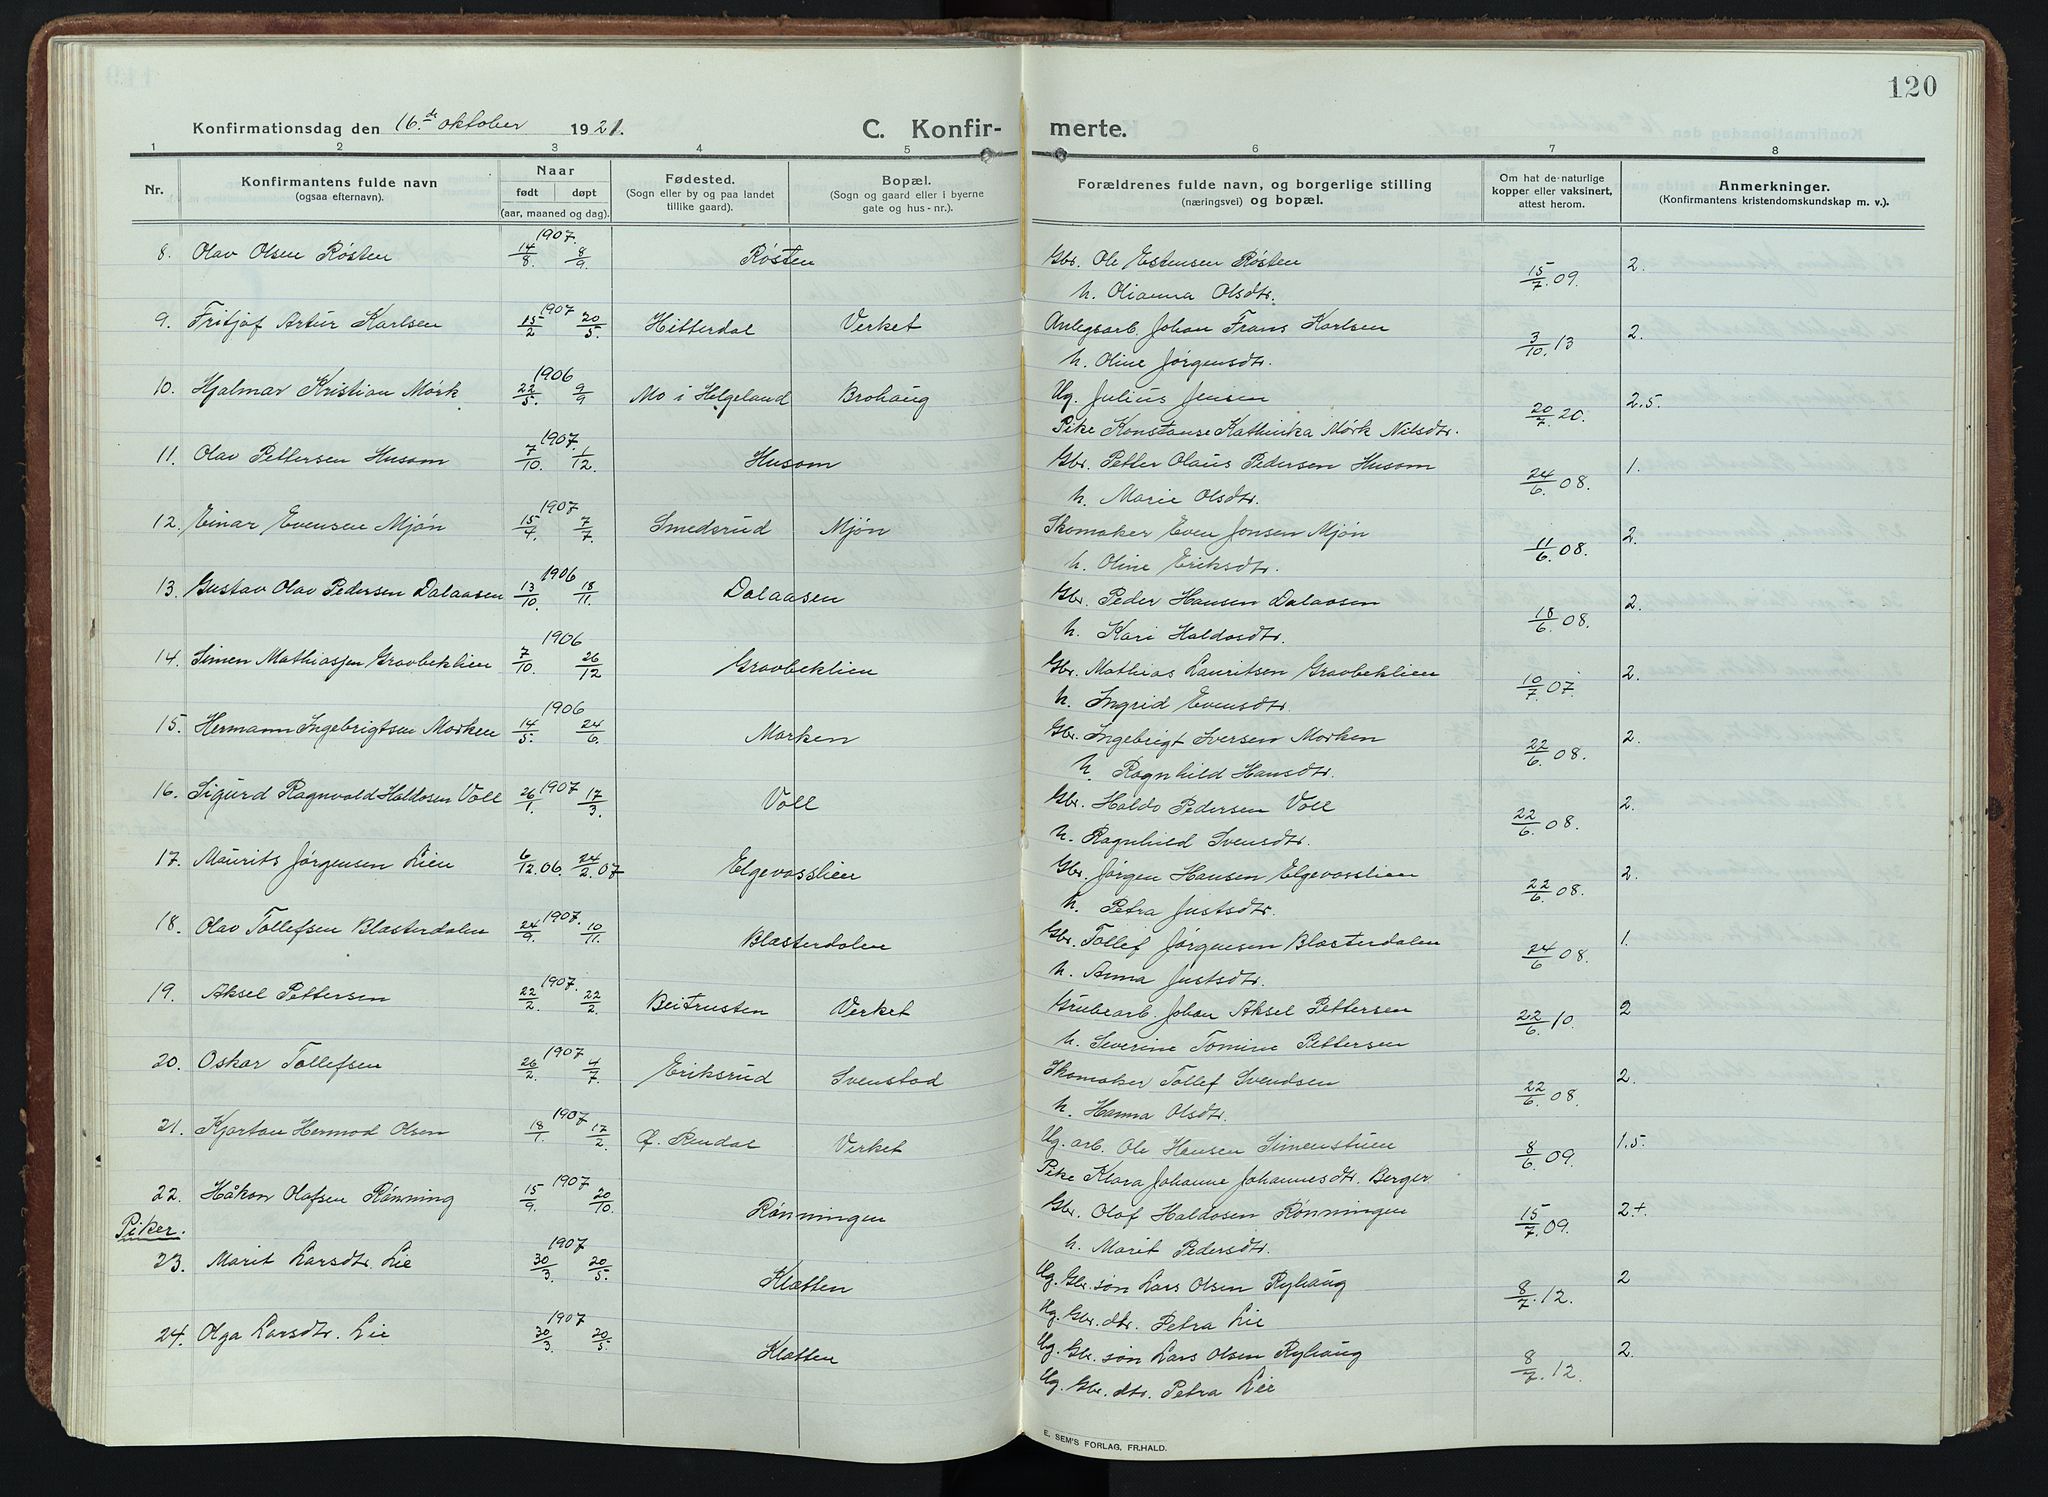 120
Konfirmationsdag den 16.de oktober 1921.
C. Konfir-merte.
1 2 3 4 5 6 7 8
Nr.
Konfirmantens fulde navn
(ogsaa efternavn).
Naar
født døpt
(aar, maaned og dag).
Fødested.
(Sogn eller by og paa landet
tillike gaard).
Bopæl.
(Sogn og gaard eller i byerne
gate og hus-nr.).
Forældrenes fulde navn, og borgerlige stilling
(næringsvei) og bopæl.
Om hat de naturlige
kopper eller vaksinert,
attest herom.
Anmerkninger.
(Konfirmantens kristendomskundskap m. v.).
8. Olav Olsen Røsten 14/8. 1907. 8/9 Røsten Gbr. Ole Estensen Røsten 15/7. 09. 2.
h. Olianna Olsdtr.
9. Fritjof Artur Karlsen 15/2 1907 20/5. Hitterdal Verket Anlegsarb. Johan Frans Karlsen 3/10. 13 2.
h. Oline Jørgensdtr.
10. Hjalmar Kristian Mørk 22/5. 1906 9/9 Mo i Helgeland Brohaug Ug. Julius Jensen 20/7. 20. 2,5.
Pike Konstanse Kathinka Mørk Nilsdtr.
11. Olav Pettersen Husom 7/10. 1907. 1/12. Husom Gbr. Petter Olaus Pedersen Husom 24/6. 08. 1.
h. Marie Olsdtr.
12. Einar Evensen Mjøn 15/4. 1907 7/7. Smedsrud Mjøn Skomaker Even Jonsen Mjøn 11/6. 08. 2.
h. Oline Eriksdtr.
13. Gustav Olav Pedersen Dalaasen 13/10. 1906 18/11. Dalaasen Gbr. Peder Hansen Dalaasen 18/6. 08. 2.
h. Kari Haldosdtr.
14. Simen Mathiassen Gravbeklien 7/10. 1906 26/12 Gravbeklien Gbr. Mathias Lauritsen Gravbeklien 10/7 07. 2.
h. Ingrid Evensdtr.
15. Hermann Ingebrigtsen Morken 14/5. 1906 24/6. Morken Gbr. Ingebrigt Iversen Morken 22/6. 08. 2.
h. Ragnhild Hansdtr.
16. Sigurd Ragnvald Haldosen Voll 26/1. 1907 17/3. Voll Gbr. Haldo Pedersen Voll 22/6. 08. 2.
h. Ragnhild Svensdtr.
17. Maurits Jørgensen Lien 6/12. 06. 24/2. 07 Elgevasslien Gbr. Jørgen Hansen Elgevasslien 22/6. 08. 2.
h. Petra Justsdtr.
18. Olav Tollefsen Blæsterdalen 24/9. 1907. 10/11. Blæsterdalen Gbr. Tollef Jørgensen Blæsterdalen 24/6 08. 1.
h. Anna Justsdtr.
19. Aksel Pettersen 22/2. 1907. 22/2. Beitrusten Verket Grubearb. Johan Aksel Pettersen 22/6. 10. 2
h. Severine Tomine Pettersen
20. Oskar Tollefsen 26/2. 1907 4/7. Eriksrud Svenstad Skomaker Tollef Svendsen 22/6. 08. 2.
h. Hanna Olsdtr.
21. Kjartan Hermod Olsen 18/1. 1907 17/2. Ø. Rendal Verket Ug. arb. Ole Hansen Simenstuen 8/6. 09. 1,5.
Pike Klara Johanne Johannesdtr. Berger
22. Håkon Olafsen Rønning 15/9. 1907 20/10. Rønningen Gbr. Olaf Haldosen Rønningen 15/7. 09. 2+.
h. Marit Pedersdtr.
Piker.
23. Marit Larsdtr. Lie 30/3. 1907 20/5. Klætten Ug. Gbr. søn Lars Olsen Ryhaug 8/7. 12. 2
Ug. Gbr. dtr. Petra Lie
24. Olga Larsdtr. Lie 30/3. 1907 20/5. Klætten Ug. Gbr. søn Lars Olsen Ryhaug 8/7. 12. 2.
Ug. Gbr. dtr. Petra Lie
E. SEM'S FORLAG, FR.HALD.